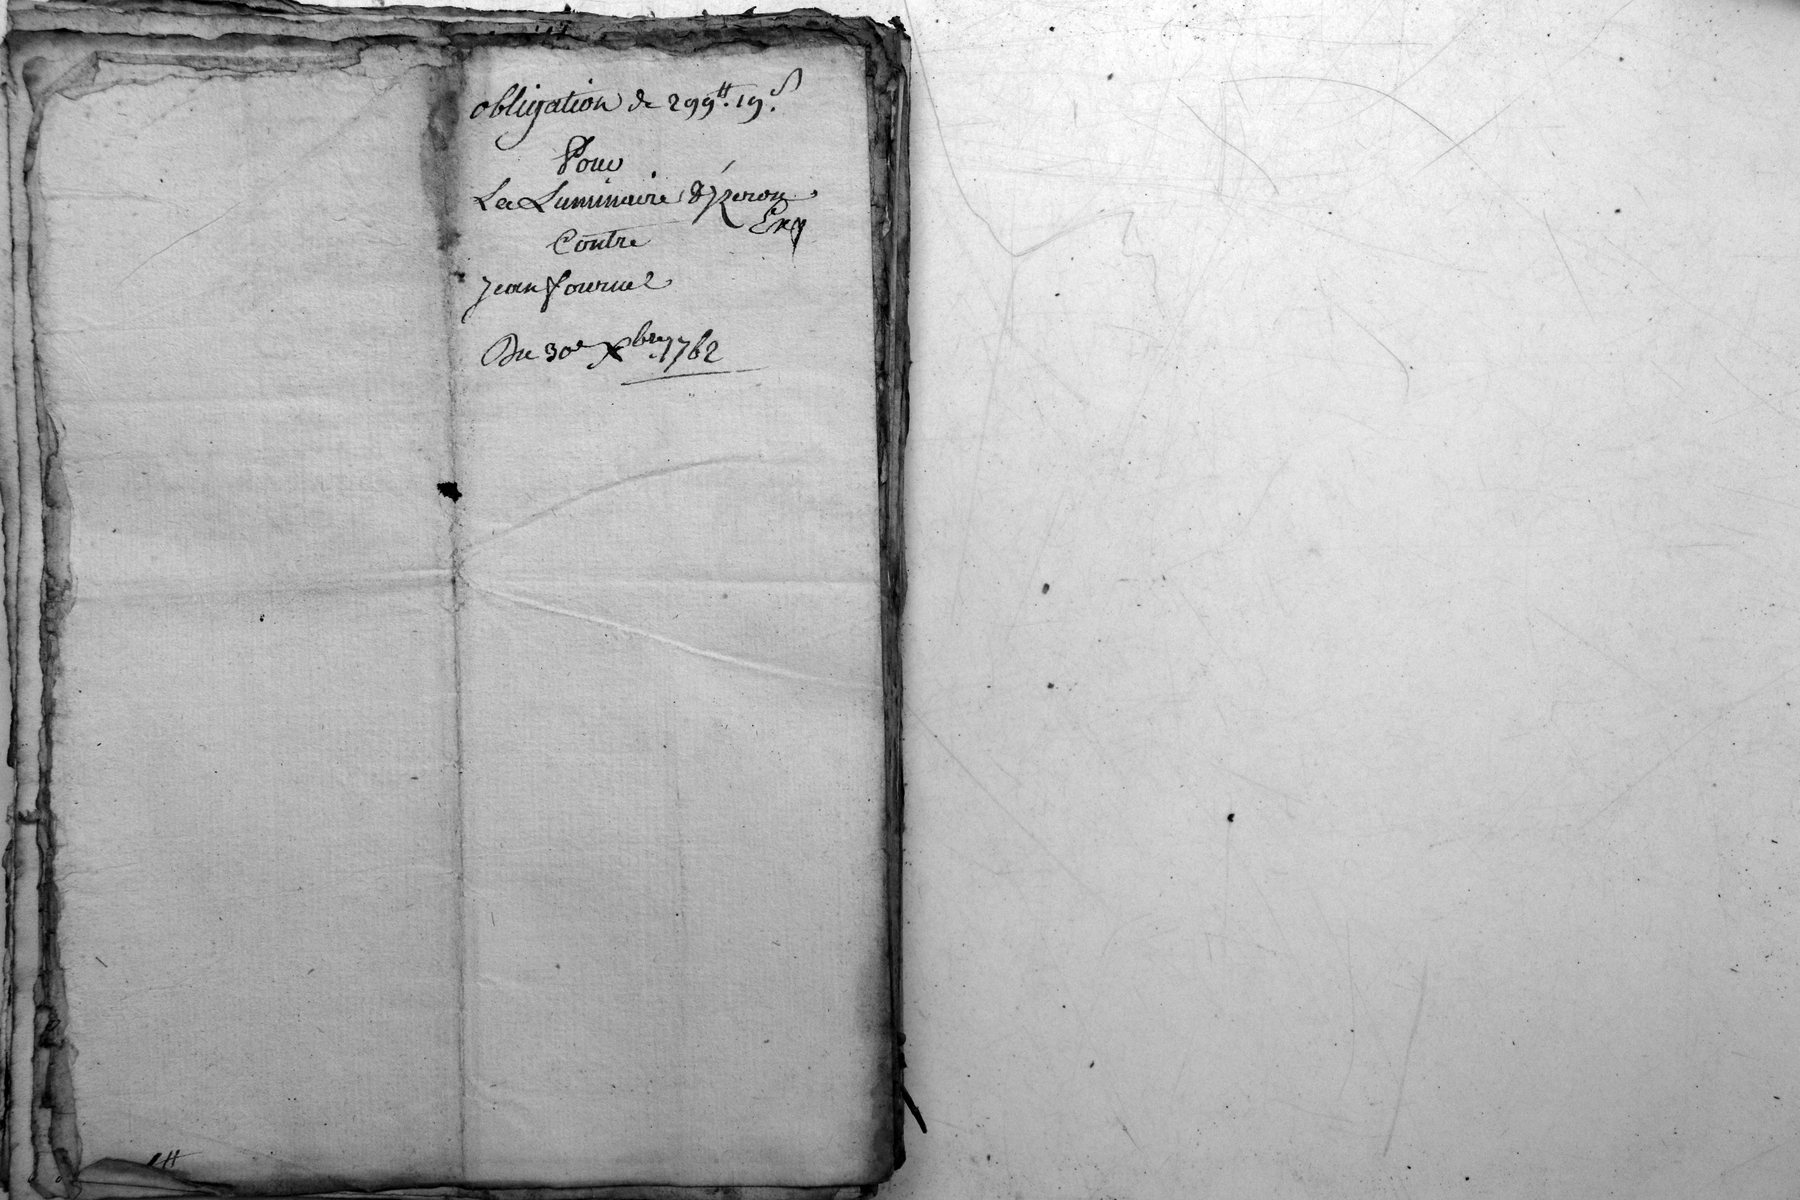 obligation de 299ᵗᵗ. 19ˢ.
Pour
La Luminaire d'yzeron
Exp
Contre
jean fournel
Du 30ᵉ Xᵇʳᵉ 1762